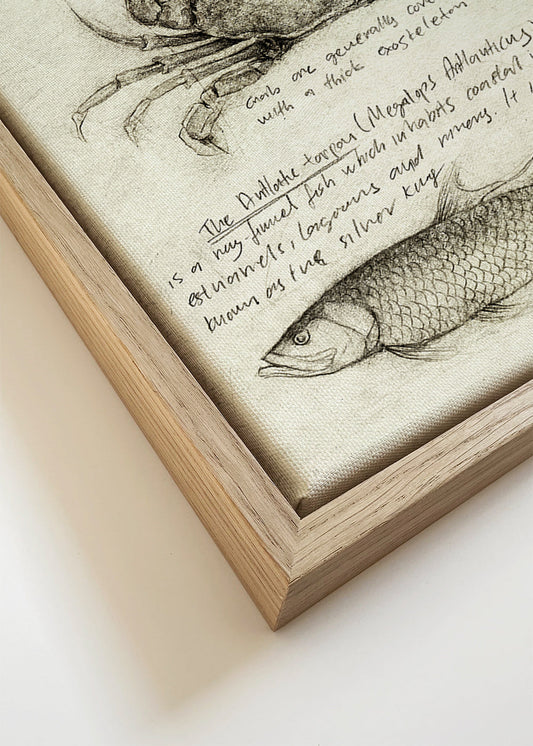 Crabs are generally cove
with a thick exosteleton
The Atlantic tarpon (Megalops Atlanticus)
is a ray finned fish which inhabits coastal
estuaries, lagoons and rivers. It i
known as the silver king